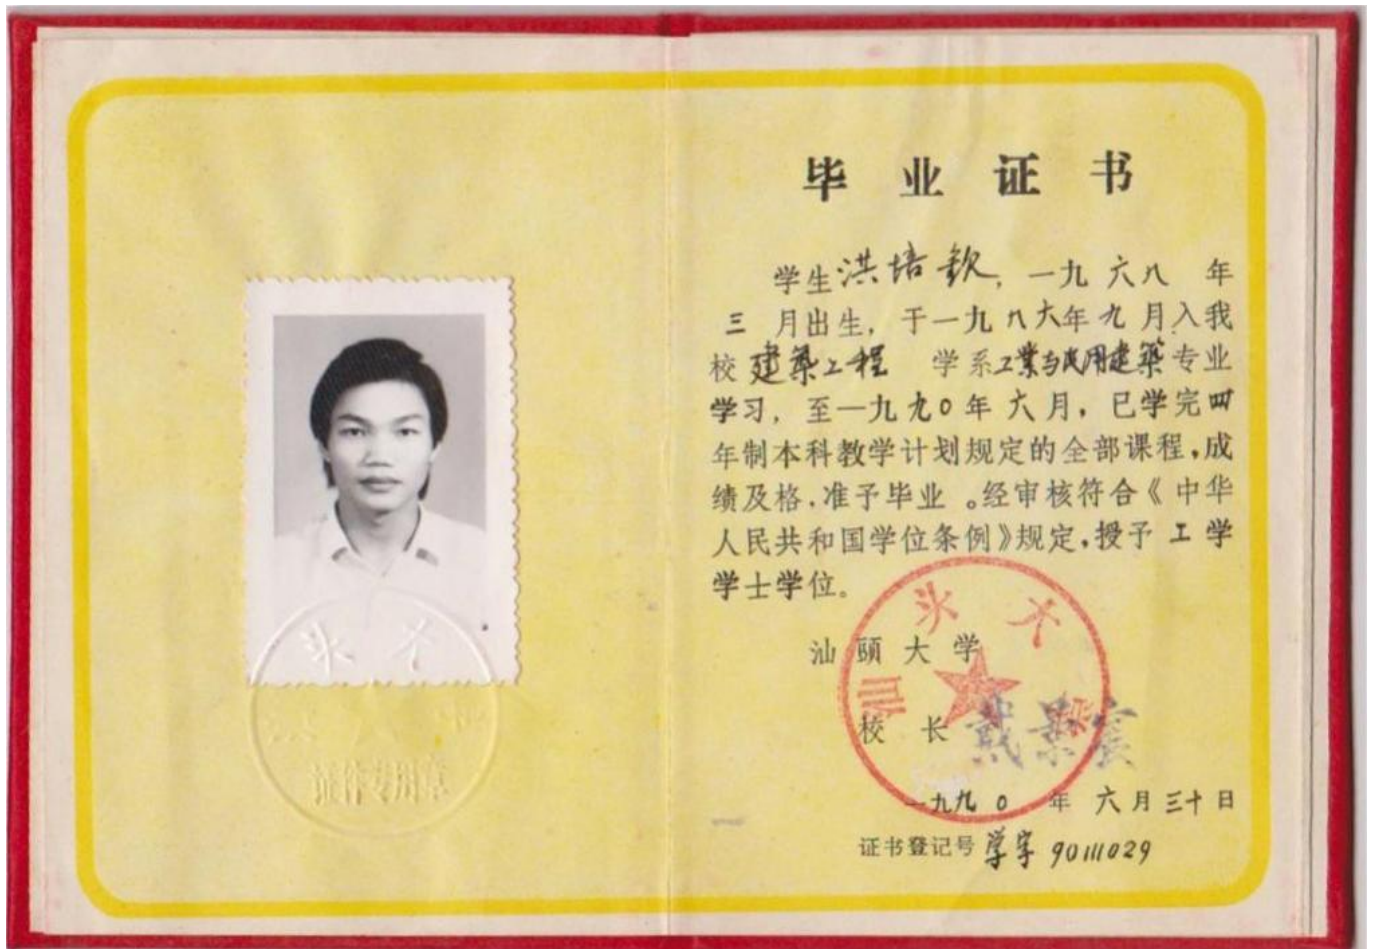 毕业证书
学生洪培钦，一九六八年
三月出生，于一九八六年九月入我
校建築工程学系工業与民用建築专业
学习，至一九九〇年六月，已学完四
年制本科教学计划规定的全部课程，成
绩及格，准予毕业。经审核符合《中华
人民共和国学位条例》规定，授予工学
学士学位。
汕頭大学
校长戴景宸
一九九〇年六月三十日
证书登记号学字9011029
汕头大学
头大
证件专用章